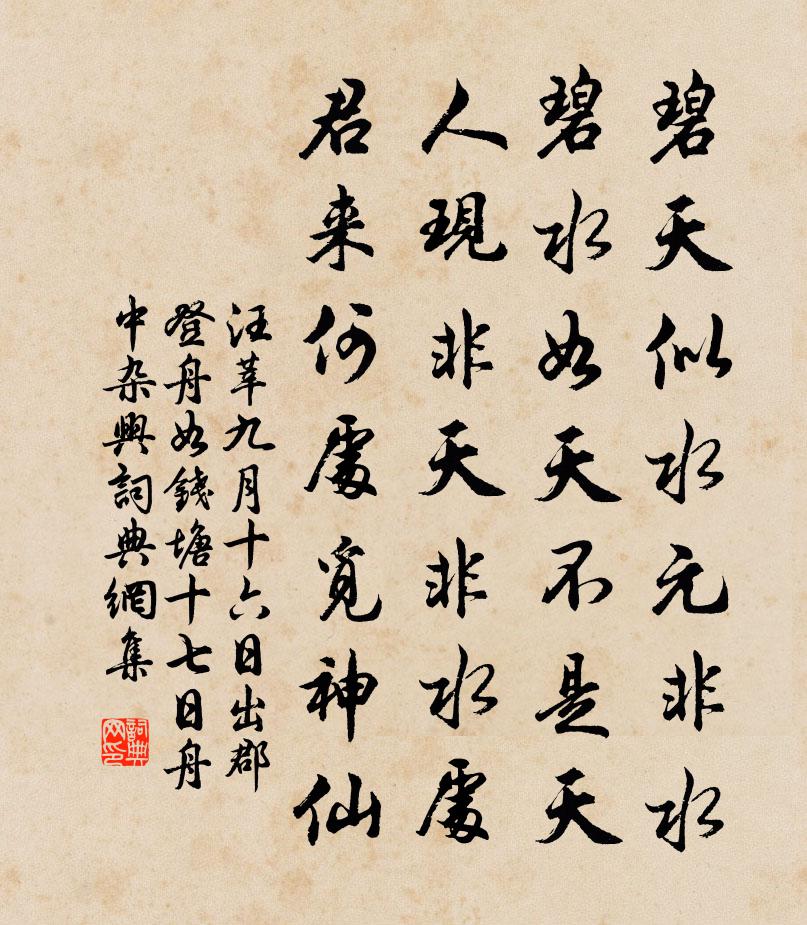 碧天似水元非水
碧水如天不是天
人現非天非水處
君来何處覓神仙
汪莘九月十六日出郡
登舟如錢塘十七日舟
中杂興詞典網集
詞典网印